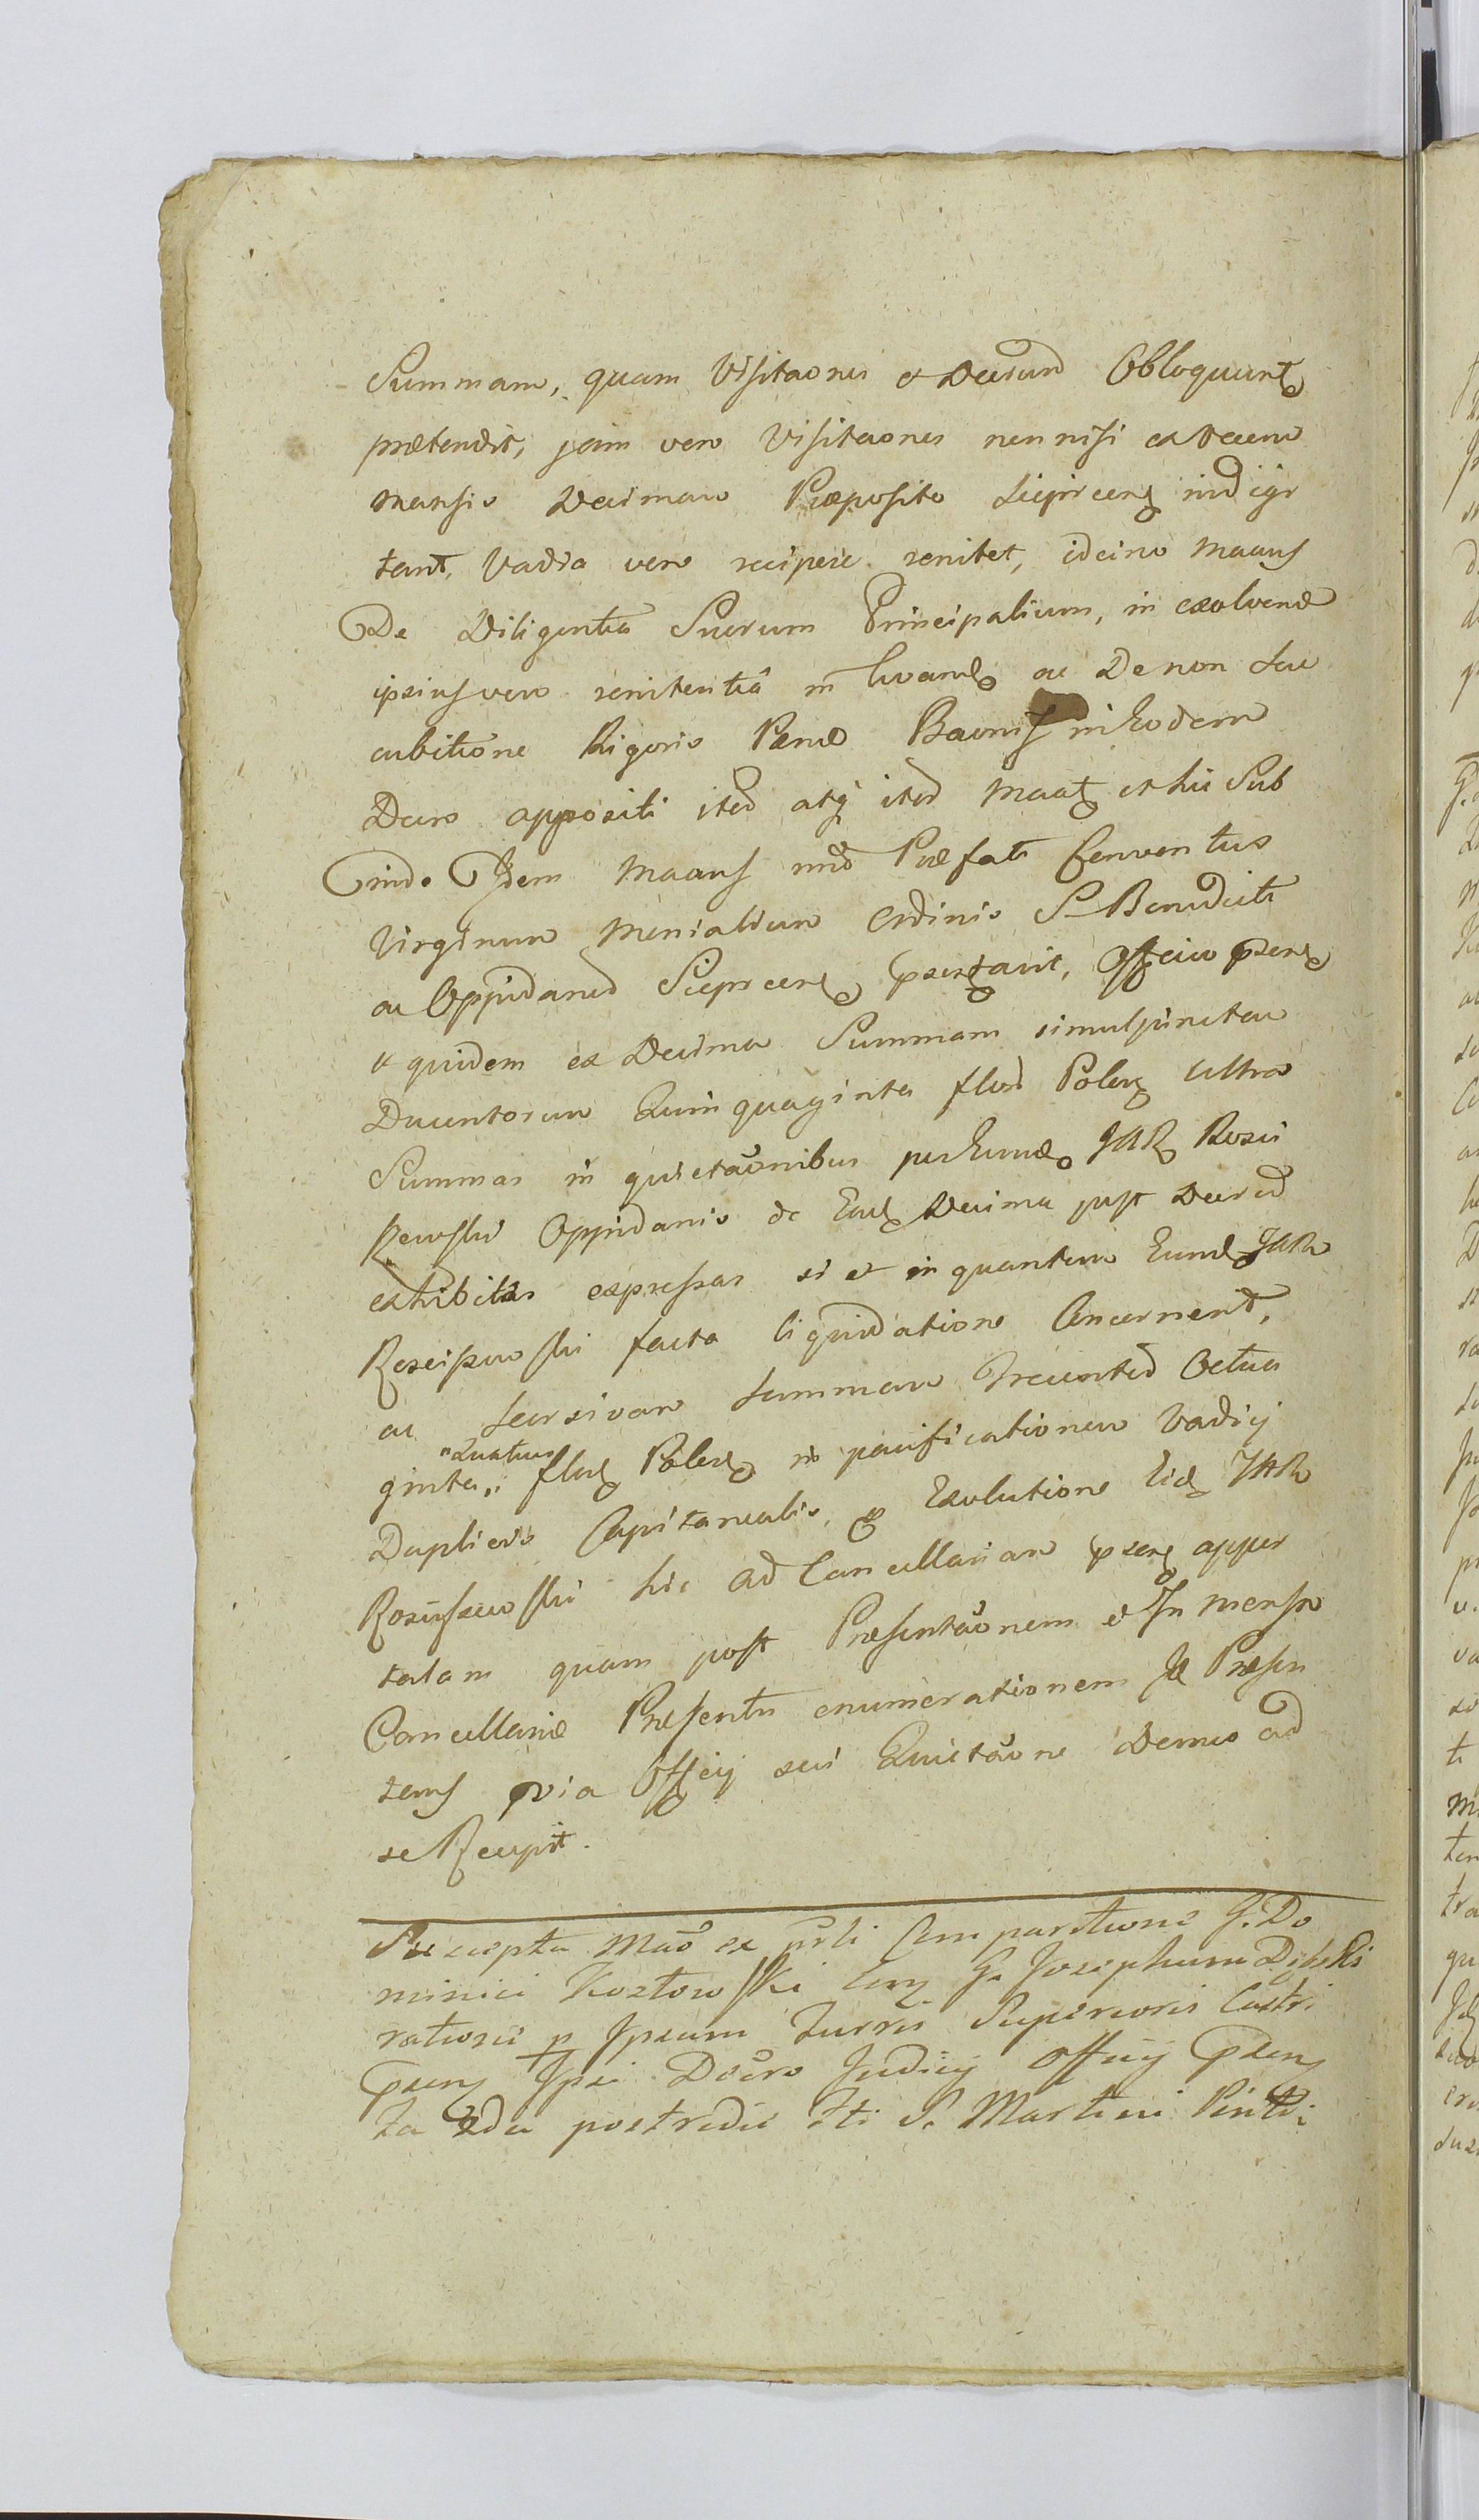 Summam, quam Visitaonis et Decrund Obloquunt
prætendit, jam vero Visitaones nonnisi ex decem
mansis Decimam Præposito Sieprcens indigi
tant, Vadia vero recipere renitet, idcirco Maans
De Diligentia Suorum Principalium, in exolvend
ipsius vero renitentia in levand ac De non Suc
cubitione Rigoris Pænæ Baonis in Eodem
Decro appositi ited atq ited Maat et hic Sub
ind. Idem Maans nnd Præfati Conventus
Virginum Monialium Ordinis S. Benedicti
ac Oppidaned Sieprcens psentavit, Officio psent
et quidem ex Decima Summam simul junctam
Ducentorum Quinquaginta flnd Polens Ultra
Summas in quietaonibus per Eund JAR Rosci
szewski Oppidanis de Ead Decima post Decred
exhibitas expressas si et in quantum Eund JAR
Rosciszewski facta liquidatione Concernent,
ac Seorsivam Summam Trecented Octua
ginta "Quatuor" flns Polens in pacificationem Vadij
Duplicis Capitanealis, pro Exolutione Eid JAR
Rosciszewski hic ad Cancellariam psens appor
tatam quam post Præsentaonem et In mensa
Cancellariæ Præsentis enumerationem Id Præsen
tans pvia Officij sui Quietaone Demum ad
se Recepit.
Suscepta Mao ex prli Comparitione G. Do
minici Kozłowski Cons G. Josephum Dębski
rationis p Ipsum Turris Superioris Castri
psens Ipsi Decro Judicij Officij psens
ta 2da postridie fti S. Martini Pontii